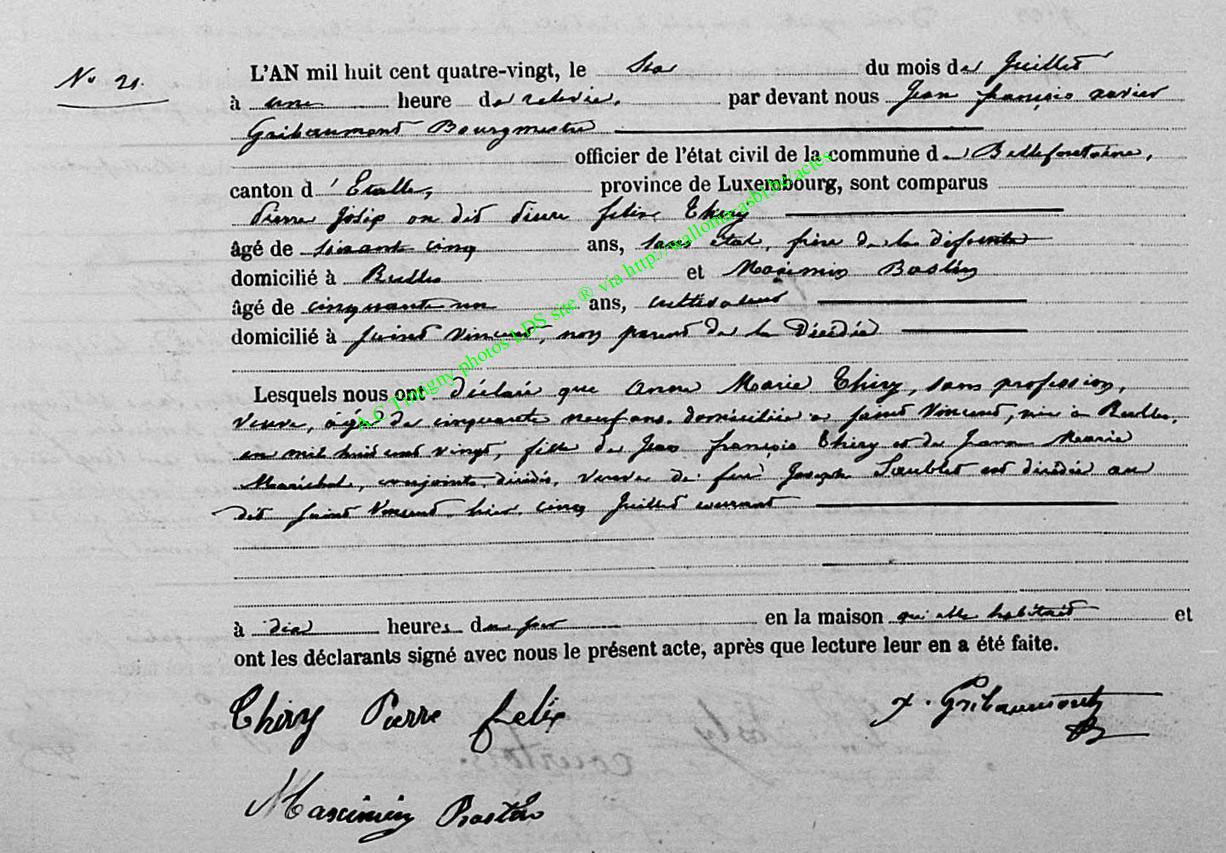 N° 21.
L'AN mil huit cent quatre-vingt, le six du mois de Juillet
à une heure de relevée, par devant nous Jean françois xavier
Gribaumont Bourgmestre
officier de l'état civil de la commune de Bellefontaine,
canton d'Etalle, province de Luxembourg, sont comparus
Pierre on dit Pierre felix Thiry
âgé de soixante cinq ans, sans état, frère de la défunte
domicilié à Rulles et Maximin Bastin
âgé de cinquante un ans, cultivateur
domicilié à saint Vincent, non parent de la Décédée
Lesquels nous ont déclaré que Anne Marie Thiry, sans profession,
veuve, âgée de cinquante neuf ans, domiciliée a saint Vincent, née à Rulles,
en mil huit cent vingt, fille de Jean françois Thiry et de Jeanne Marie
Maréchal, conjoints décédés, veuve de feu Joseph est décédée au
dit saint Vincent, hier, cinq Juillet courant
à dix heures du soir en la maison qu'elle habitait et
ont les déclarants signé avec nous le présent acte, après que lecture leur en a été faite.
Thiry Pierre felix
x. Gribaumont
Maximin Bastin
photos LDS site ® via http://